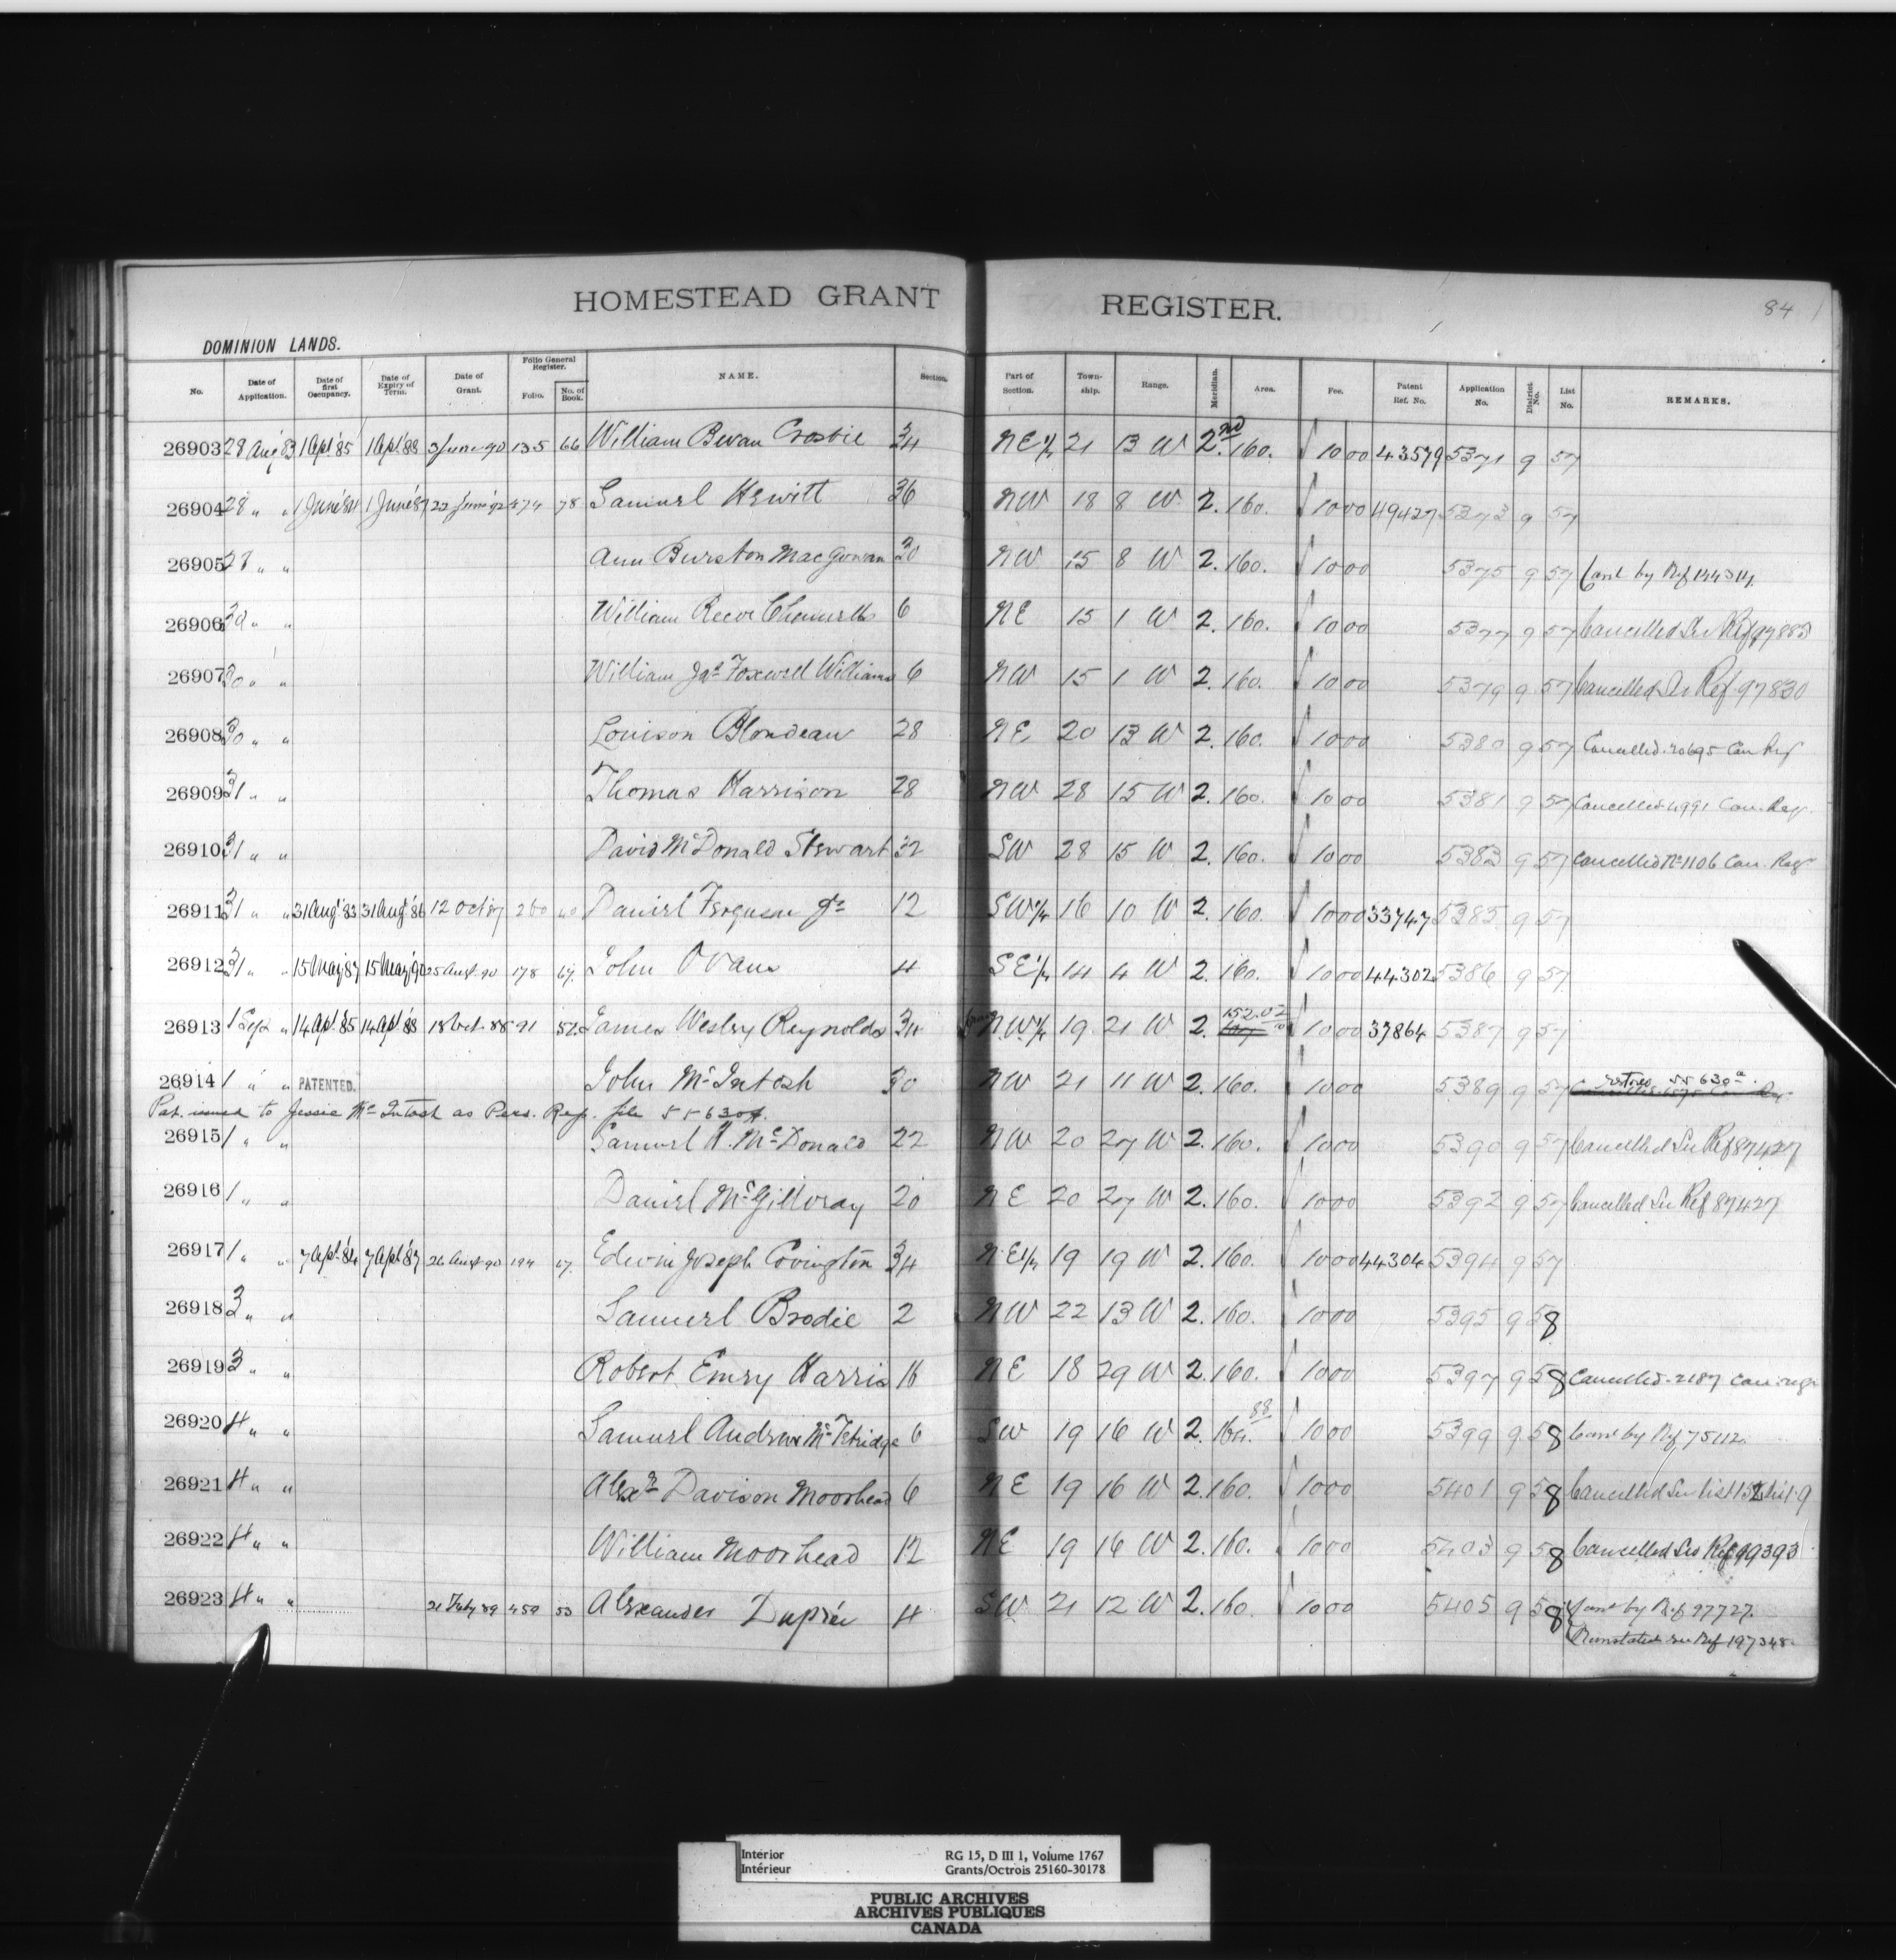 HOMESTEAD GRANT REGISTER.
84
DOMINION LANDS.
No. Date of Application. Date of first Occupancy. Date of Expiry of Term. Date of Grant. Folio General Register. Folio. No. of Book. NAME. Section. Part of Section. Township. Range. Meridian. Area. Fee. Patent Ref. No. Application No. District No. List No. REMARKS.
26903 28 Aug 83 1 Apl. '85 1 Apl. '88 3 June 90 135 66 William Bevan Crosbie 34 NE 1/4 21 13 W 2nd 160. 10 00 43579 5371 9 57
26904 28 " " 1 June '84 1 June '87 22 June '92 474 78 Samuel Hewitt 36 NW 18 8 W 2. 160. 10 00 49427 5373 9 57
26905 28 " " Ann Burston MacGowan 30 NW 15 8 W 2. 160. 10 00 5375 9 57 Canl by Ref 144314
26906 30 " " William Reeve 6 NE 15 1 W 2. 160. 10 00 5377 9 57 Cancelled See Ref 97883
26907 30 " " William Jas Foxwell Williams 6 NW 15 1 W 2. 160. 10 00 5379 9 57 Cancelled See Ref 97830
26908 30 " " Louison Blondeau 28 NE 20 13 W 2. 160. 10 00 5380 9 57 Cancelled 20695 Can Ref
26909 31 " " Thomas Harrison 28 NW 28 15 W 2. 160. 10 00 5381 9 57 Cancelled 4991 Can. Reg.
26910 31 " " David McDonald Stewart 32 SW 28 15 W 2. 160. 10 00 5383 9 57 Cancelled No 1106 Can. Reg.
26911 31 " " 31 Aug '83 31 Aug '86 12 Oct 87 260 40 Daniel Ferguson Jr 12 SW 1/4 16 10 W 2. 160. 10 00 33747 5385 9 57
26912 31 " " 15 May '87 15 May '90 25 Augt. 90 178 67. John Ovans 4 SE 1/4 14 4 W 2. 160. 10 00 44302 5386 9 57
26913 1 Sep " 14 Apl. '85 14 Apl. '88 18 Oct. 88 91 52 James Wesley Reynolds 34 N.W. 1/4 19 21 W 2. 152.02 10 00 37864 5387 9 57
26914 1 " " PATENTED. John McIntosh 30 NW 21 11 W 2. 160. 10 00 5389 9 57 55630a
Pat. issued to Jessie McIntosh as Pers. Rep. file 55630A.
26915 1 " " Samuel H. McDonald 22 NW 20 27 W 2. 160. 10 00 5390 9 57 Cancelled See Ref 87427
26916 1 " " Daniel McGillvray 20 NE 20 27 W 2. 160. 10 00 5392 9 57 Cancelled See Ref 87427
26917 1 " " 7 Apl. '84 7 Apl. '87 26 Augt 90 194 67. Edwin Joseph Covington 34 NE 1/4 19 19 W 2. 160. 10 00 44304 5394 9 57
26918 3 " " Samuel Brodie 2 NW 22 13 W 2. 160. 10 00 5395 9 58
26919 3 " " Robert Emry Harris 16 NE 18 29 W 2. 160. 10 00 5397 9 58 Cancelled 2187 Can. regr
26920 4 " " Samuel Andrew McFetridge 6 SW 19 16 W 2. 88 10 00 5399 9 58 Canl by Ref 75112
26921 4 " " Alexr Davison Moorhead 6 NE 19 16 W 2. 160. 10 00 5401 9 58 Cancelled See List
26922 4 " " William Moorhead 12 NE 19 16 W 2. 160. 10 00 5403 9 58 Cancelled See Ref 99393
26923 4 " " 21 Feby 89 459 53 Alexander Dupré 4 SW 21 12 W 2. 160. 10 00 5405 9 58 Canl by Ref 97727.
Reinstated see Ref 197348.
Interior RG 15, D III 1, Volume 1767
Intérieur Grants/Octrois 25160-30178
PUBLIC ARCHIVES
ARCHIVES PUBLIQUES
CANADA